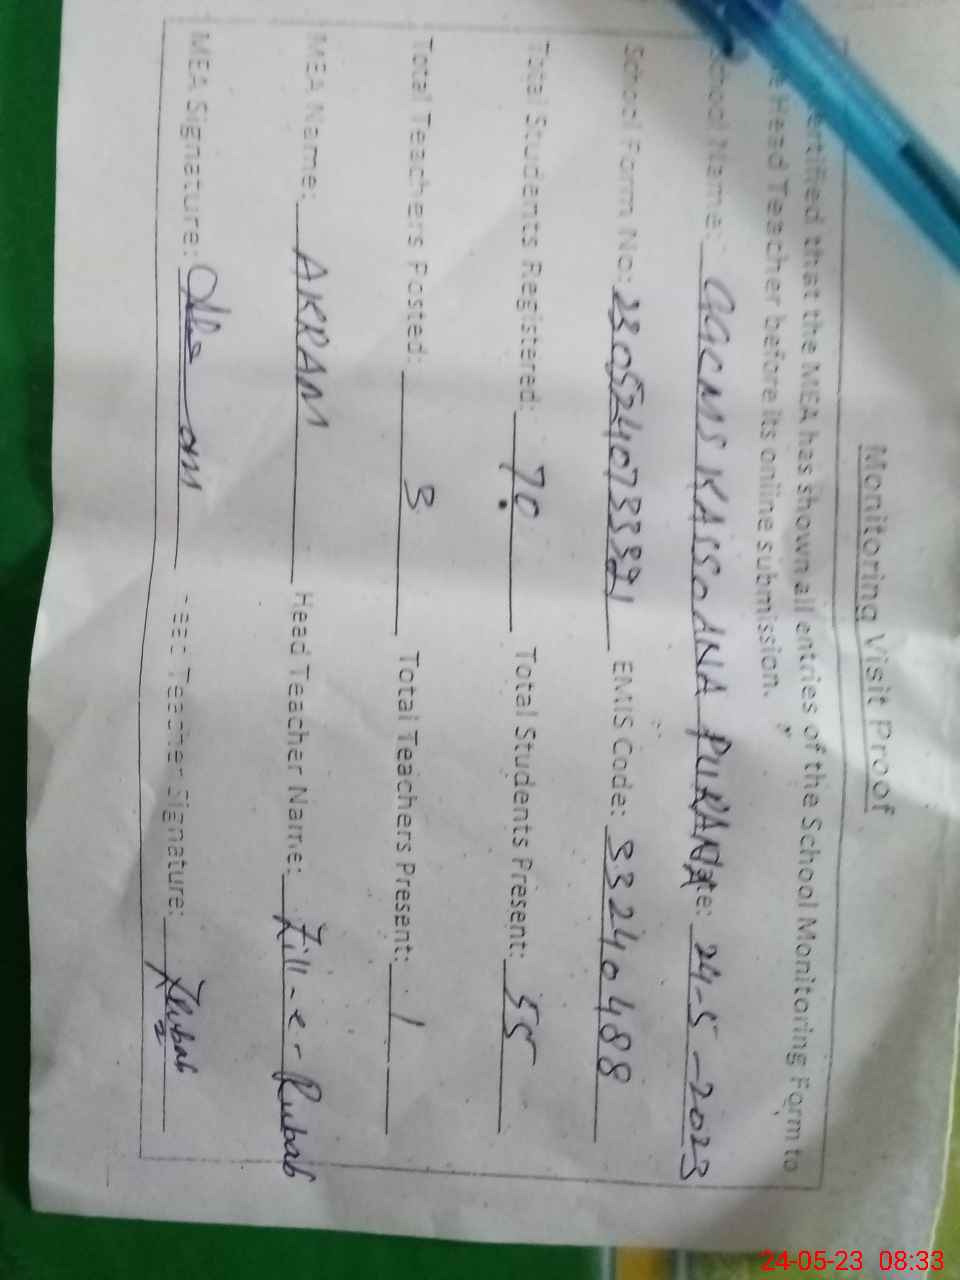 Monitoring Visit Proof
ertified that the MEA has shown all entries of the School Monitoring Form to
e Head Teacher before its online submission.
chool Name: GGCMS KASSOANA PURANA ate: 24-5-2023
School Form No: 230524073391 EMIS Code: 33240488
Total Students Registered: 70 Total Students Present: 55
Total Teachers Posted: 3 Total Teachers Present: 1
MEA Name: AKRAM Head Teacher Name: Zill-e-Rubab
MEA Signature: Teacher Signature: Rubab
24-05-23 08:33